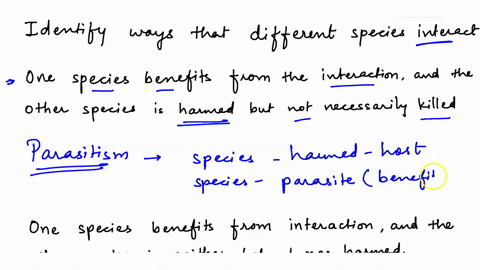 Identify ways that different species interact
One species benefits from the interaction, and the
other species is harmed but not necessarily killed
Parasitism → species - harmed - host
species - parasite ( benefi
One species benefits from interaction, and the